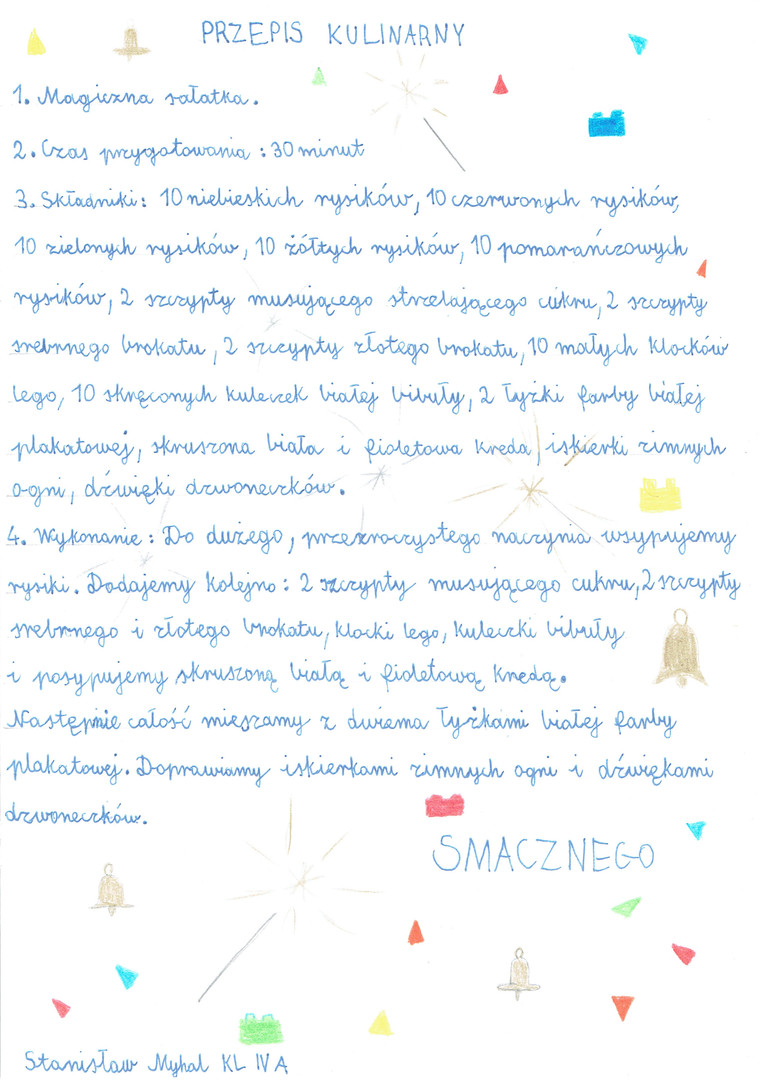 PRZEPIS KULINARNY
1. Magiczna sałatka.
2. Czas przygotowania : 30 minut
3. Składniki: 10 niebieskich rysików, 10 czerwonych rysików,
10 zielonych rysików, 10 żółtych rysików, 10 pomarańczowych
rysików, 2 szczypty musującego strzelającego cukru, 2 szczypty
srebrnego brokatu, 2 szczypty złotego brokatu, 10 małych klocków
lego, 10 skręconych kuleczek białej bibuły, 2 łyżki farby białej
plakatowej, skruszona biała i fioletowa kreda, iskierki zimnych
ogni, dźwięki dzwoneczków.
4. Wykonanie: Do dużego, przezroczystego naczynia wsypujemy
rysiki. Dodajemy kolejno: 2 szczypty musującego cukru, 2 szczypty
srebrnego i złotego brokatu, klocki lego, kuleczki bibuły
i posypujemy skruszoną białą i fioletową kredą.
Następnie całość mieszamy z dwiema łyżkami białej farby
plakatowej. Doprawiamy iskierkami zimnych ogni i dźwiękami
dzwoneczków.
SMACZNEGO
Stanisław Myhal KL IV A